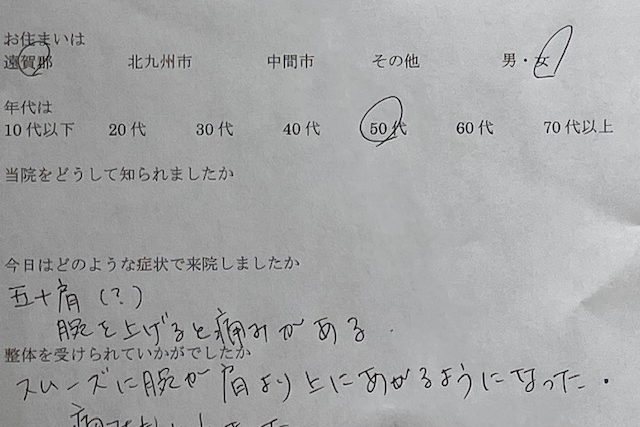 お住まいは
遠賀郡 北九州市 中間市 その他 男・女
年代は
10代以下 20代 30代 40代 50代 60代 70代以上
当院をどうして知られましたか
今日はどのような症状で来院しましたか
五十肩(?)
腕を上げると痛みがある.
整体を受けられていかがでしたか
スムーズに腕が肩より上にあがるようになった.